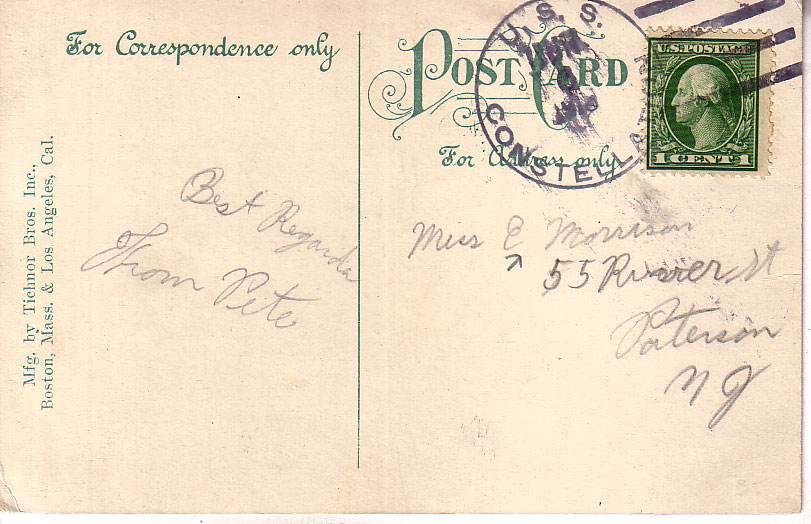 For Correspondence only
POST CARD
For Address only
U.S.S.
CONSTELLATION
U.S. POSTAGE
1 CENT 1
Mfg. by Tichnor Bros. Inc.,
Boston, Mass. & Los Angeles, Cal.
Best Regards
From Pete
Miss E Morrison
55 St
Paterson
N J